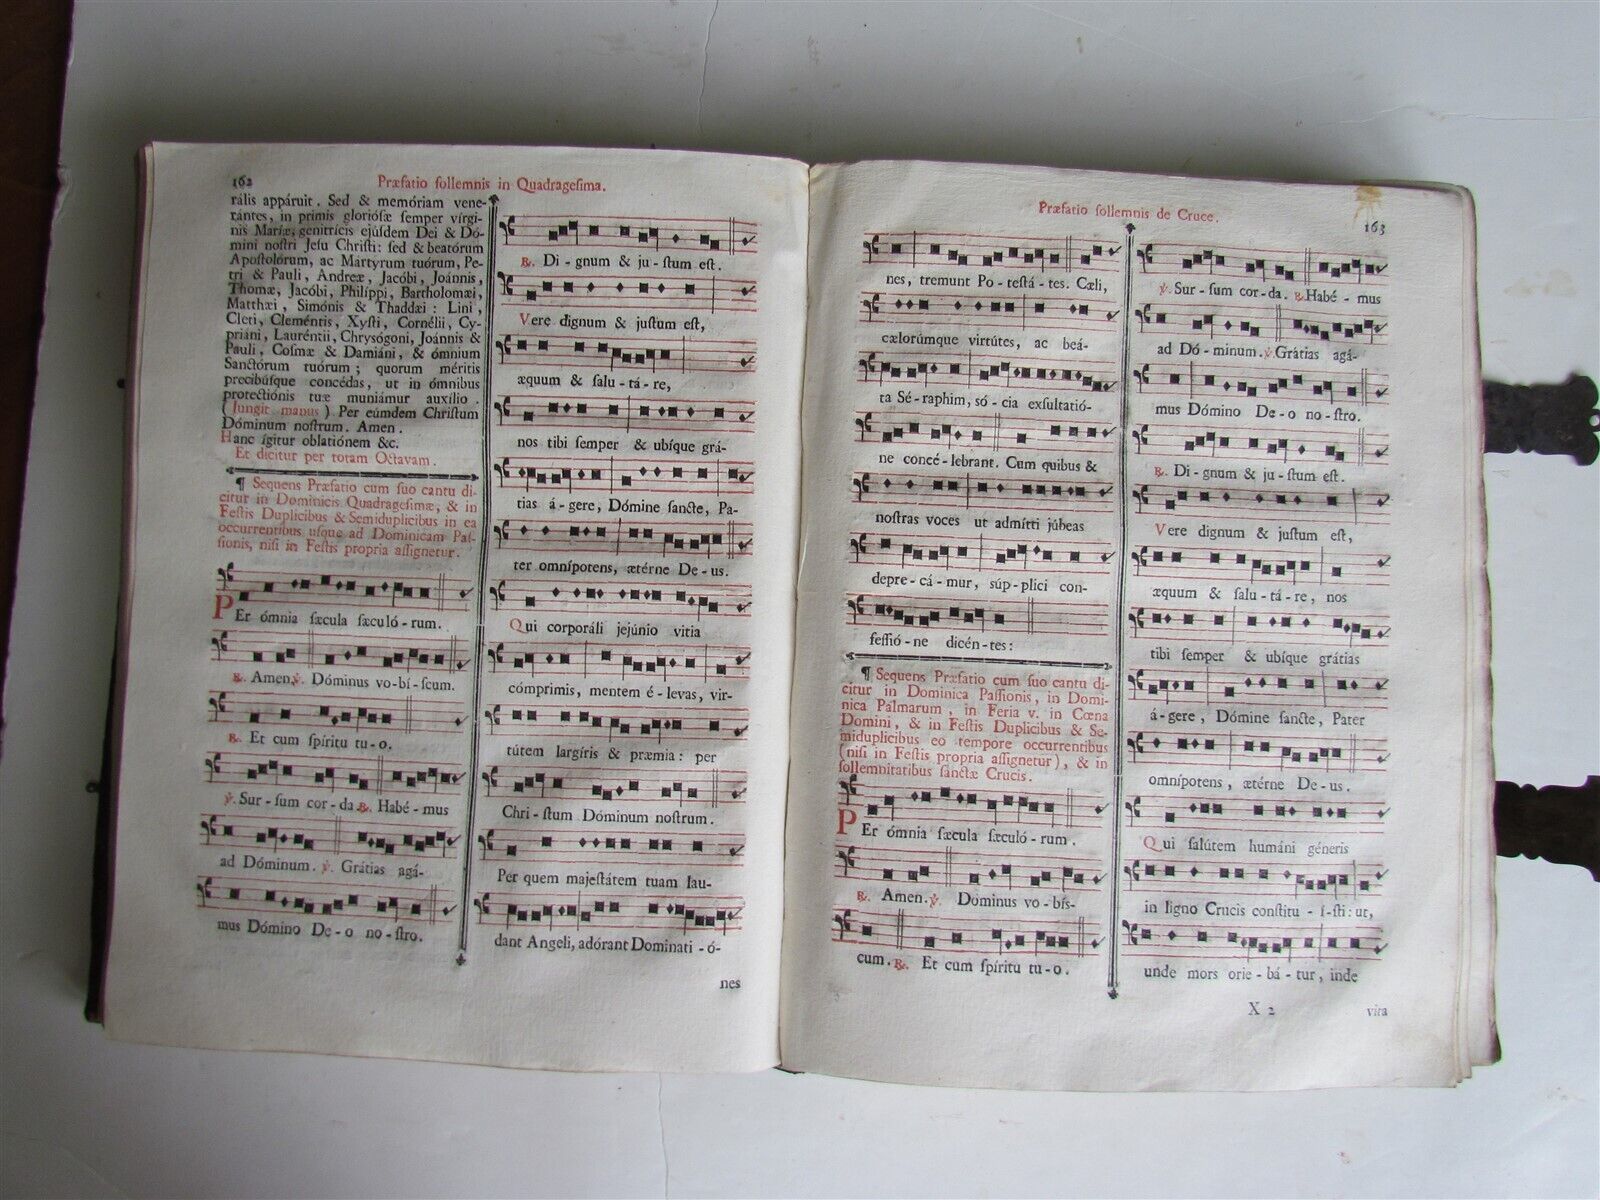 162
Præfatio ſollemnis in Quadrageſima.
rális appáruit. Sed & memóriam vene-
rántes, in primis glorióſæ ſemper vírgi-
nis Maríæ, genitrícis ejúſdem Dei & Dó-
mini noſtri Jeſu Chriſti: ſed & beatórum
Apoſtolórum, ac Mártyrum tuórum, Pe-
tri & Pauli, Andreæ, Jacóbi, Joánnis,
Thomæ, Jacóbi, Philíppi, Bartholomæi,
Matthæi, Simónis & Thaddæi: Lini,
Cleti, Cleméntis, Xyſti, Cornélii, Cy-
priáni, Lauréntii, Chryſógoni, Joánnis &
Pauli, Coſmæ & Damiáni, & ómnium
Sanctórum tuórum; quorum méritis
precibúſque concédas, ut in ómnibus
protectiónis tuæ muniámur auxílio.
(Jungit manus) Per eúmdem Chriſtum
Dóminum noſtrum. Amen.
Hanc ígitur oblatiónem &c.
Et dicitur per totam Octavam.
¶ Sequens Præfatio cum ſuo cantu di-
citur in Dominicis Quadrageſimæ, & in
Feſtis Duplicibus & Semiduplicibus in ea
occurrentibus uſque ad Dominicam Paſ-
ſionis, niſi in Feſtis propria aſſignetur.
PEr ómnia ſæcula ſæculó-rum.
℟. Amen. ℣. Dóminus vo-bí-ſcum.
℟. Et cum ſpíritu tu-o.
℣. Sur-ſum cor-da. ℟. Habé-mus
ad Dóminum. ℣. Grátias agá-
mus Dómino De-o no-ſtro.
℟. Di-gnum & ju-ſtum eſt.
Vere dignum & juſtum eſt,
æquum & ſalu-tá-re,
nos tibi ſemper & ubíque grá-
tias á-gere, Dómine ſancte, Pa-
ter omnípotens, ætérne De-us.
Qui corporáli jejúnio vítia
cómprimis, mentem é-levas, vir-
tútem largíris & præmia: per
Chri-ſtum Dóminum noſtrum.
Per quem majeſtátem tuam lau-
dant Angeli, adórant Dominati-ó-
nes
Præfatio ſollemnis de Cruce.
163
nes, tremunt Po-teſtá-tes. Cæli,
cælorúmque virtútes, ac beá-
ta Sé-raphim, ſó-cia exſultatió-
ne concé-lebrant. Cum quibus &
noſtras voces ut admítti júbeas
depre-cá-mur, ſúp-plici con-
feſſió-ne dicén-tes:
¶ Sequens Præfatio cum ſuo cantu di-
citur in Dominica Paſſionis, in Domi-
nica Palmarum, in Feria v. in Cœna
Domini, & in Feſtis Duplicibus & Se-
miduplicibus eo tempore occurrentibus
(niſi in Feſtis propria aſſignetur), & in
ſollemnitatibus ſanctæ Crucis.
PEr ómnia ſæcula ſæculó-rum.
℟. Amen. ℣. Dóminus vo-bíſ-
cum. ℟. Et cum ſpíritu tu-o.
℣. Sur-ſum cor-da. ℟. Habé-mus
ad Dó-minum. ℣. Grátias agá-
mus Dómino De-o no-ſtro.
℟. Di-gnum & ju-ſtum eſt.
Vere dignum & juſtum eſt,
æquum & ſalu-tá-re, nos
tibi ſemper & ubíque grátias
á-gere, Dómine ſancte, Pater
omnípotens, ætérne De-us.
Qui ſalútem humáni géneris
in ligno Crucis conſtitu-í-ſti: ut,
unde mors orie-bá-tur, inde
X 2
vita